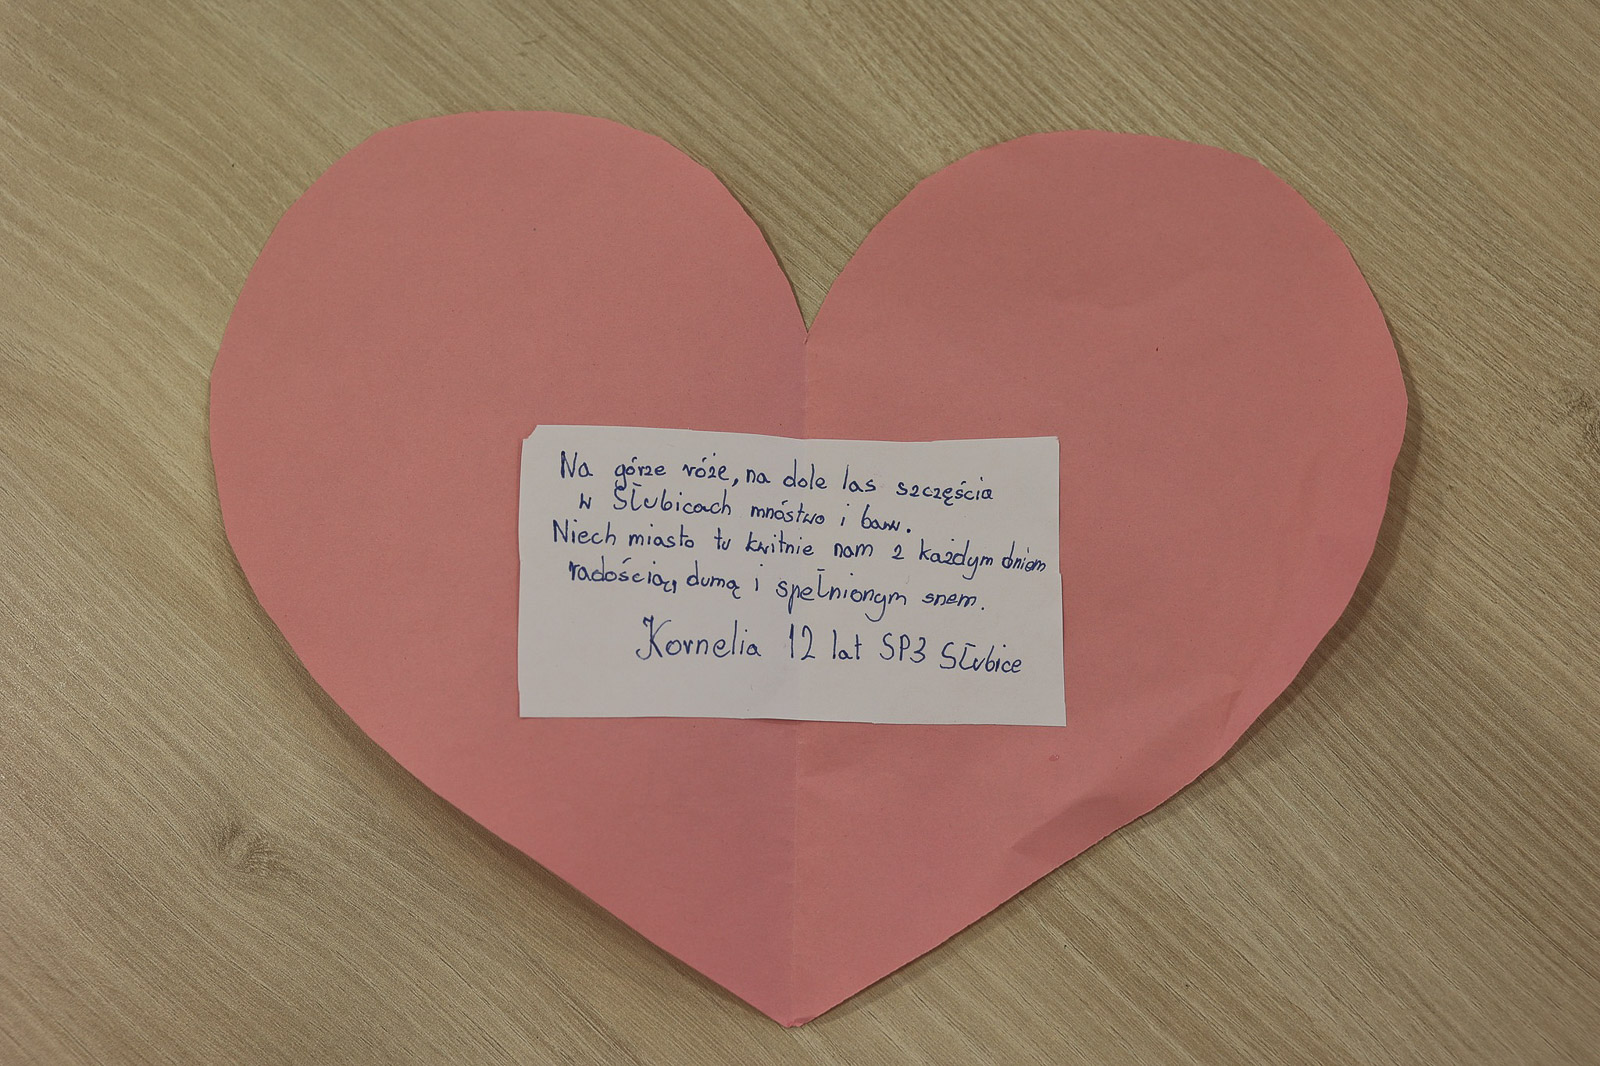 Na górze róże, na dole las szczęścia
w Słubicach mnóstwo i barw.
Niech miasto tu kwitnie nam z każdym dniem
radością, dumą i spełnionym snem.
Kornelia 12 lat SP3 Słubice